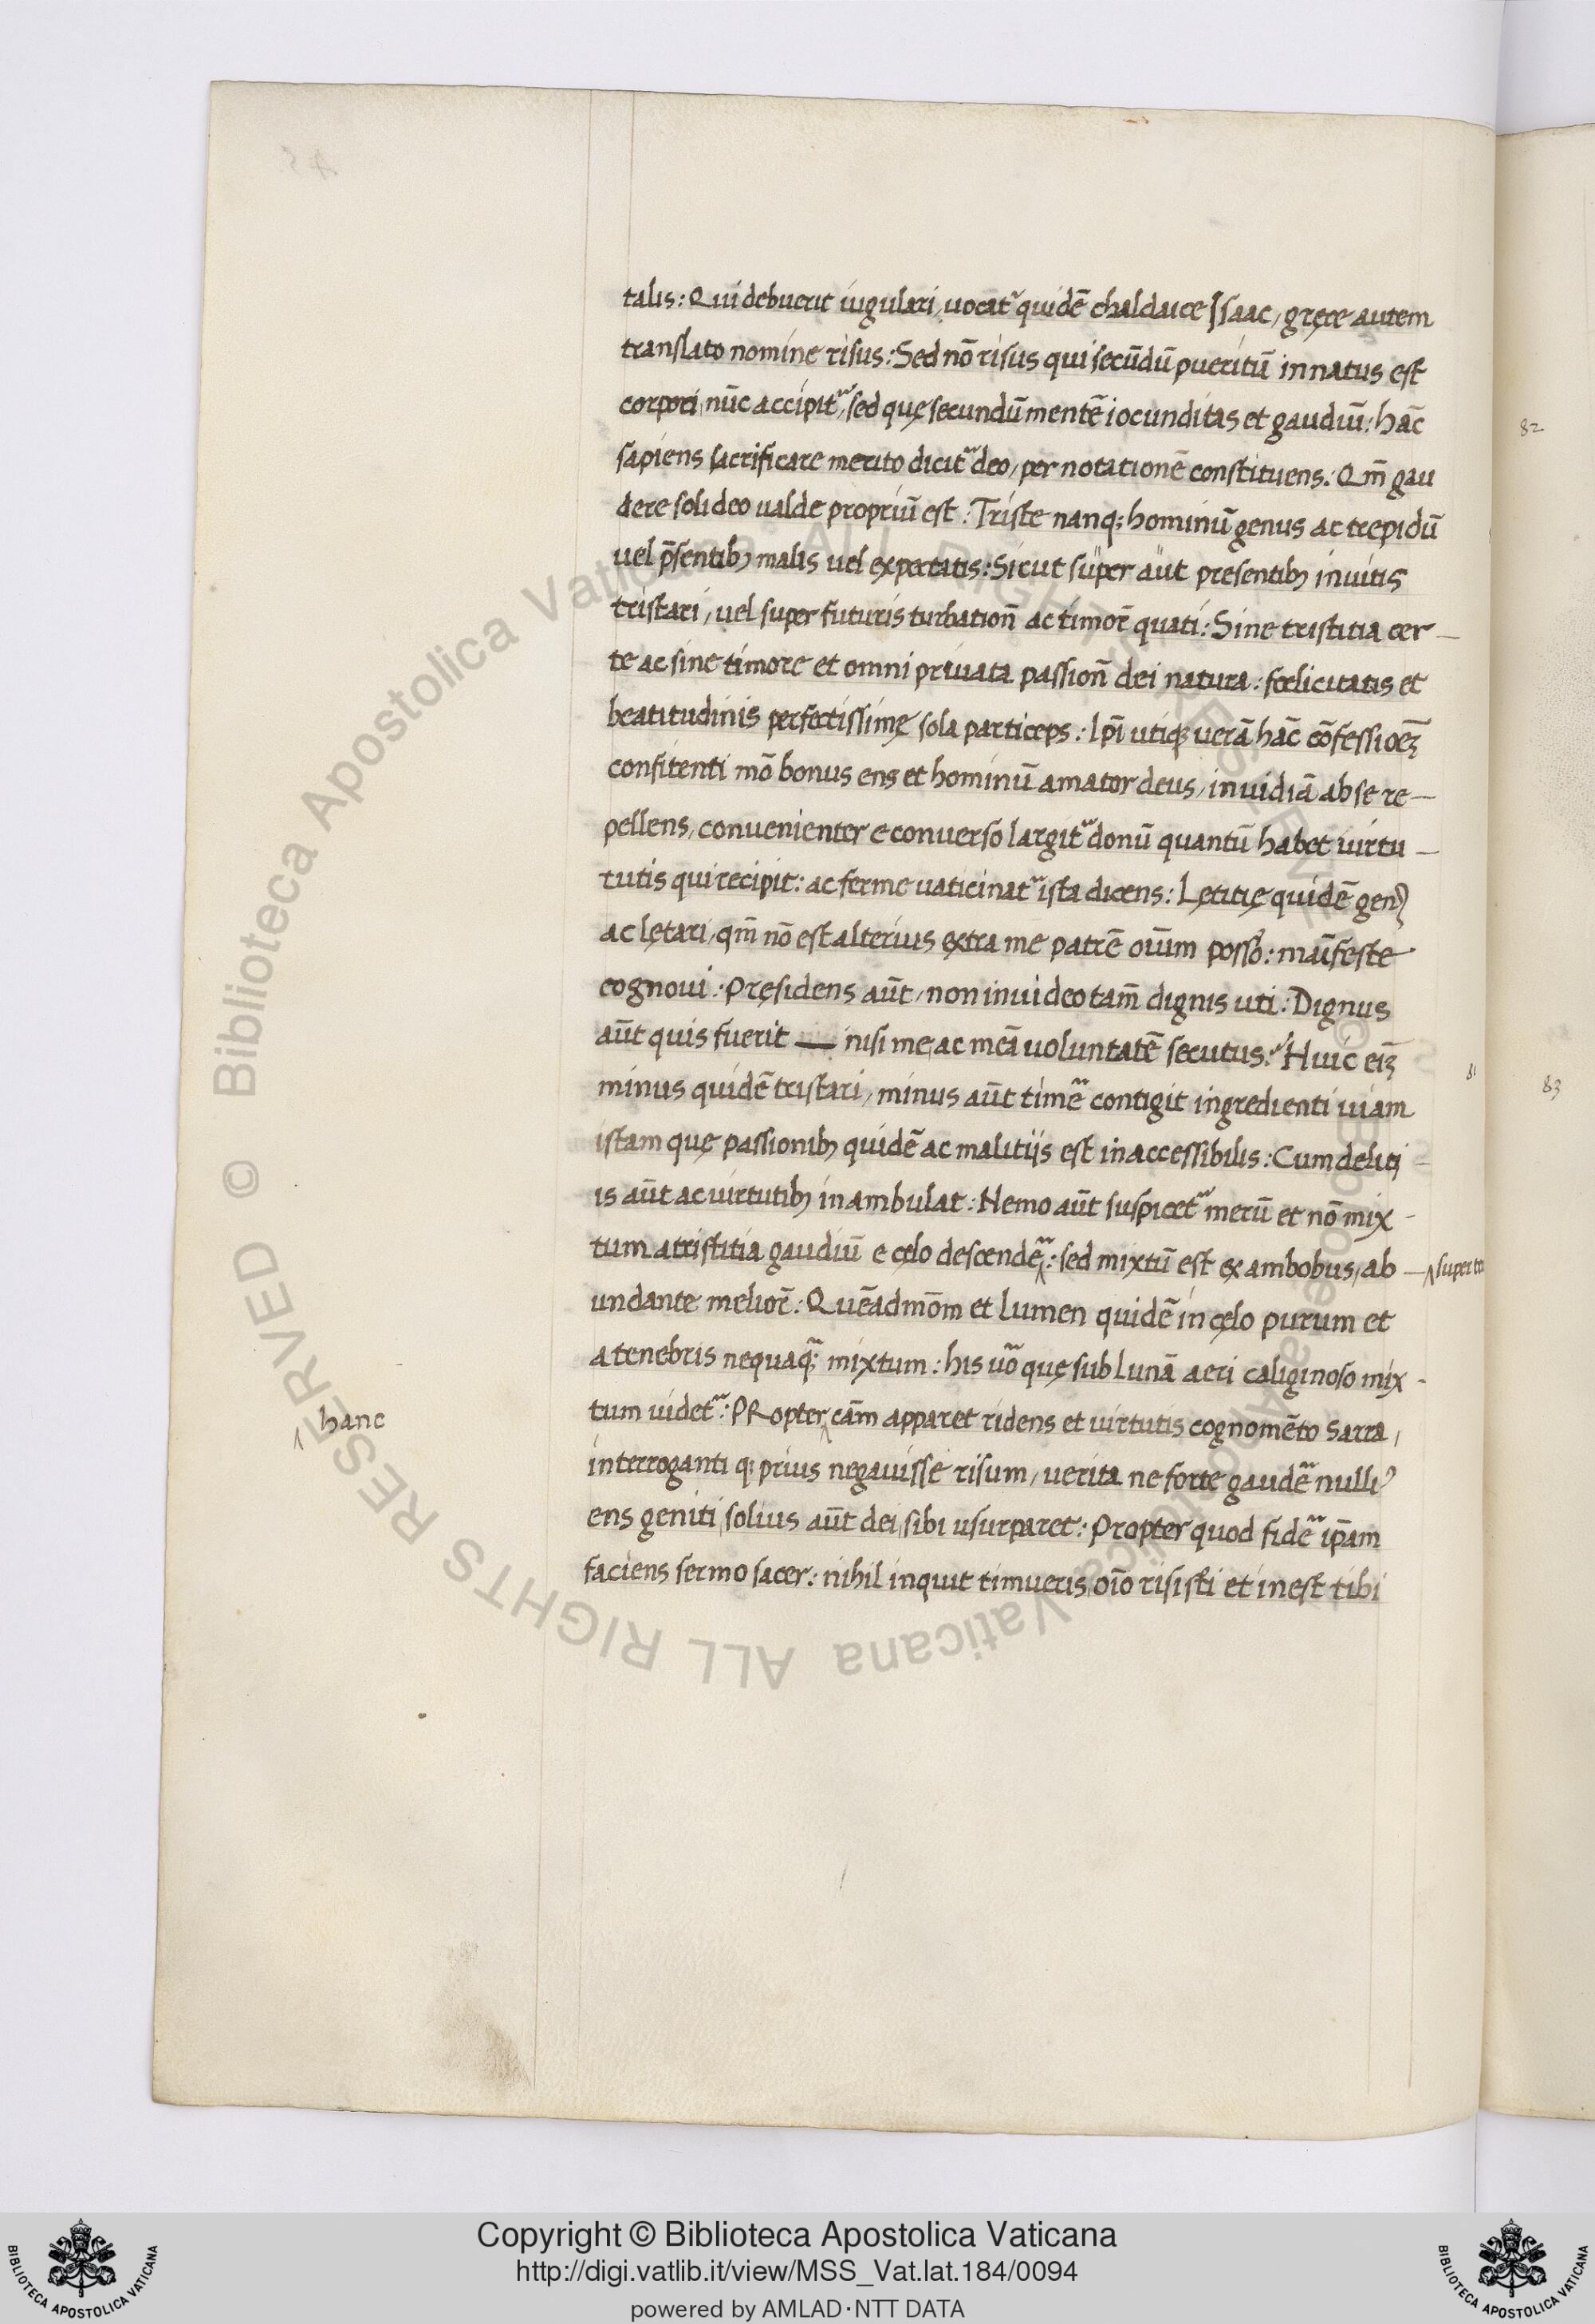 talis: Qui debuerit iugulari, uocatr quidē chaldaice Isaac, gręce autem
translato nomine risus: Sed nō risus qui secūdū pueritiū innatus est
corpori, nūc accipitr, sed quę secundū mentē iocunditas et gaudiū: hāc
sapiens sacrificare merito dicitr deo, per notationē constituens: Qm̄ gau
dere soli deo ualde propriū est: Triste nanq; hominū genus ac trepidū
uel p̄sentib; malis uel expectatis: Sicut super aūt presentib; inuitis
tristari, uel super futuris turbation̄ ac timor̄ quati: Sine tristitia cer—
te ac sine timore et omni priuata passion̄ dei natura: fœlicitatis et
beatitudinis perfectissimę sola particeps: Ip̄i utiq; uerā hāc cōfessioēȝ
confitenti mō bonus ens et hominū amator deus, inuidiā ab se re—
pellens, conuenienter e conuerso largitr donū quantū habet uirtu—
tutis qui recipit: ac ferme uaticinatr ista dicens: Lętitię quidē gen9
ac lętari, qm̄ nō est alterius extra me patrē oīum poss̄o: maīfeste
cognoui: Pręsidens aūt, non inuideo tam̄ dignis uti: Dignus
aūt quis fuerit — nisi me ac meā uoluntatē secutus: Huic eiȝ
minus quidē tristari, minus aūt timē contigit ingredienti uiam
istam quę passionib; quidē ac malitijs est inaccessibilis: Cum deliti
is aūt ac uirtutib; inambulat: Nemo aūt suspicetr merū et nō mix-
tum a tristitia gaudiū e cęlo descendē^: sed mixtū est ex ambobus, ab—
^super
undante melior̄: Quēadmōm et lumen quidē in cęlo purum et
a tenebris nequaq; mixtum: his uo quę sub Lunā aeri caliginoso mix-
tum uidetr: PRopter^ cām apparet ridens et uirtutis cognomēto Sarra,
^hanc
interroganti q; prius negauisse risum, uerita ne forte gaudē nulli9
ens geniti, solius aūt dei, sibi usurparet: Propter quod fidē ip̄am
faciens sermo sacer: nihil inquit timueris, oīo risisti et inest tibi
82
81
83
© Biblioteca Apostolica Vaticana ALL RIGHTS RESERVED
© Biblioteca Apostolica Vaticana ALL RIGHTS RESERVED
BIBLIOTECA APOSTOLICA VATICANA
Copyright © Biblioteca Apostolica Vaticana
http://digi.vatlib.it/view/MSS_Vat.lat.184/0094
powered by AMLAD·NTT DATA
BIBLIOTECA APOSTOLICA VATICANA